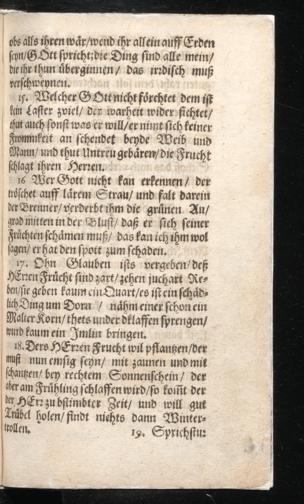 obs alls ihren wär/wend ihr allein auff Erden
seyn/GOtt spricht: die Ding sind alle mein/
die ihr thun überginnen / das irdisch muß
verschweynen.
15. Welcher GOtt nicht förchtet dem ist
kein Laster zviel/ der warheit wider fichtet/
thut auch sonst was er will/er nimt sich keiner
Frommkeit an schendet beyde Weib und
Mann/ und thut Untreu gebären/die Frucht
schlagt ihren Herren.
16 Wer Gott nicht kan erkennen/ der
tröschet auff lärem Strau/ und falt darein
der Brenner/verderbt ihm die grünen Au/
grad mitten in der Blust/ daß er sich seiner
Früchten schämen muß/ das kan ich ihm wol
sagen/ er hat den spott zum schaden.
17. Ohn Glauben ists vergeben/deß
HErren Frücht sind zart/zehen juchart Re-
ben/sie geben kaum ein Quart/es ist ein schäd-
lich Ding um Dorn / nähm einer schon ein
Malter Korn/thets under dklaffen sprengen/
wurd kaum ein Imlin bringen.
18. Ders HErren Frucht wil pflantzen/der
must nun emsig seyn/ mit zaunen und mit
schantzen/ bey rechtem Sonnenschein/ der
aber am Frühling schlaffen wird/so komt der
der HErr zu bstimbter Zeit/ und will gut
Trübel holen/findt nichts dann Winter-
trollen.
19. Sprichstu: